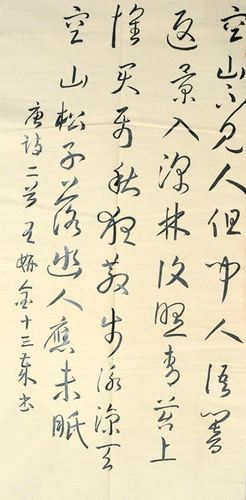 空山不见人但闻人语响
返景入深林复照青苔上
怀君属秋夜散步咏凉天
空山松子落幽人应未眠
唐诗二首 十三岁书